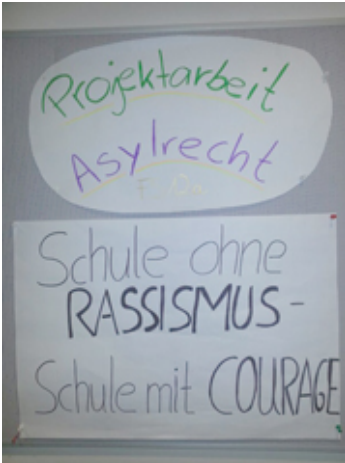 Projektarbeit
Asylrecht
Schule ohne
RASSISMUS-
Schule mit COURAGE